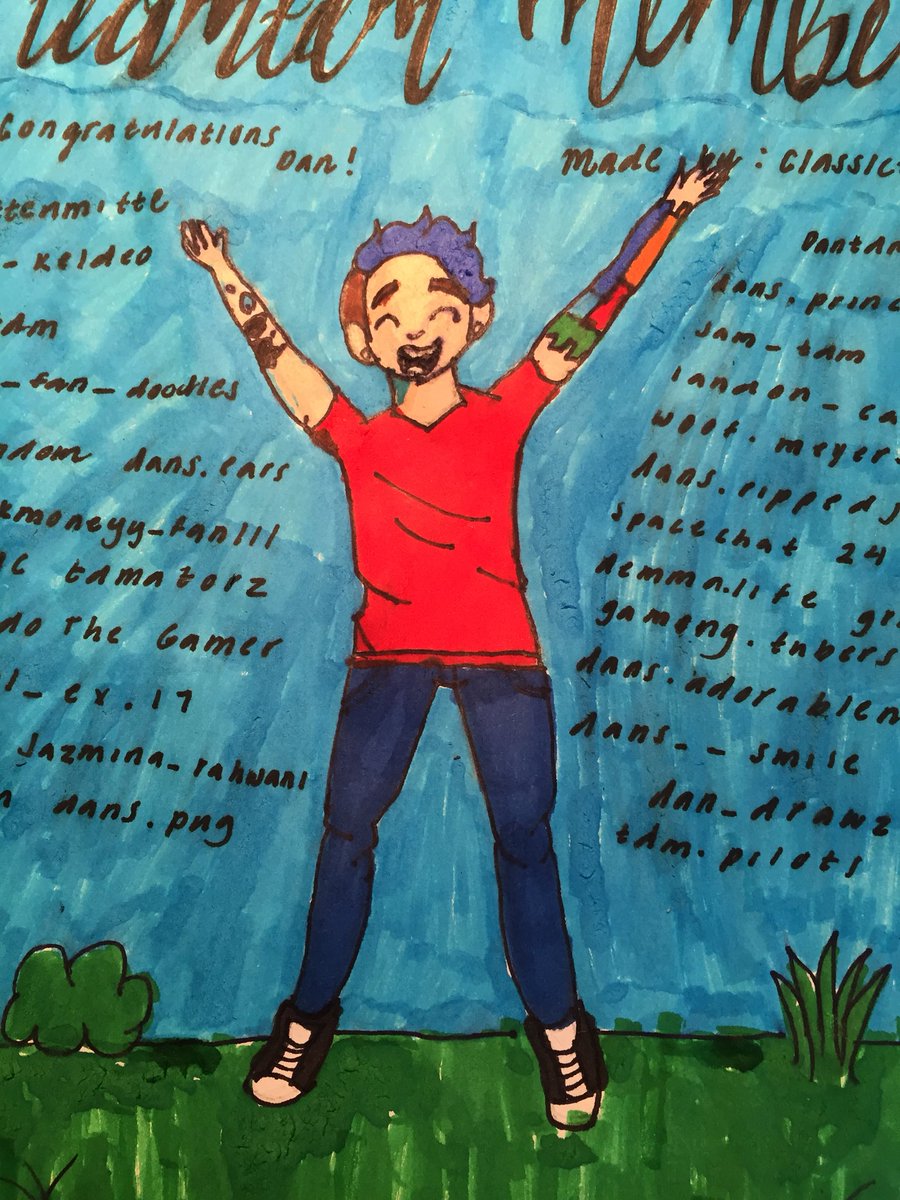 Congratulations
Dan!
Made by : Classict
ttenmitte
- Keldeo
tdm
_ fan _ doodles
ndom dans.ears
xmoneyy_fan111
tdmatorz
do The Gamer
l_ ex.17
Jazmina_rahwani
n dans.png
Dantdm
dans.princ
Jam - tdm
landon _ ca
woof. meyer.
dans.ripped j
spacechat 24
demma.life gr
gameng.tubers
dans.adorablen
dans_ _ smile
dan_drawz
tdm.pilots